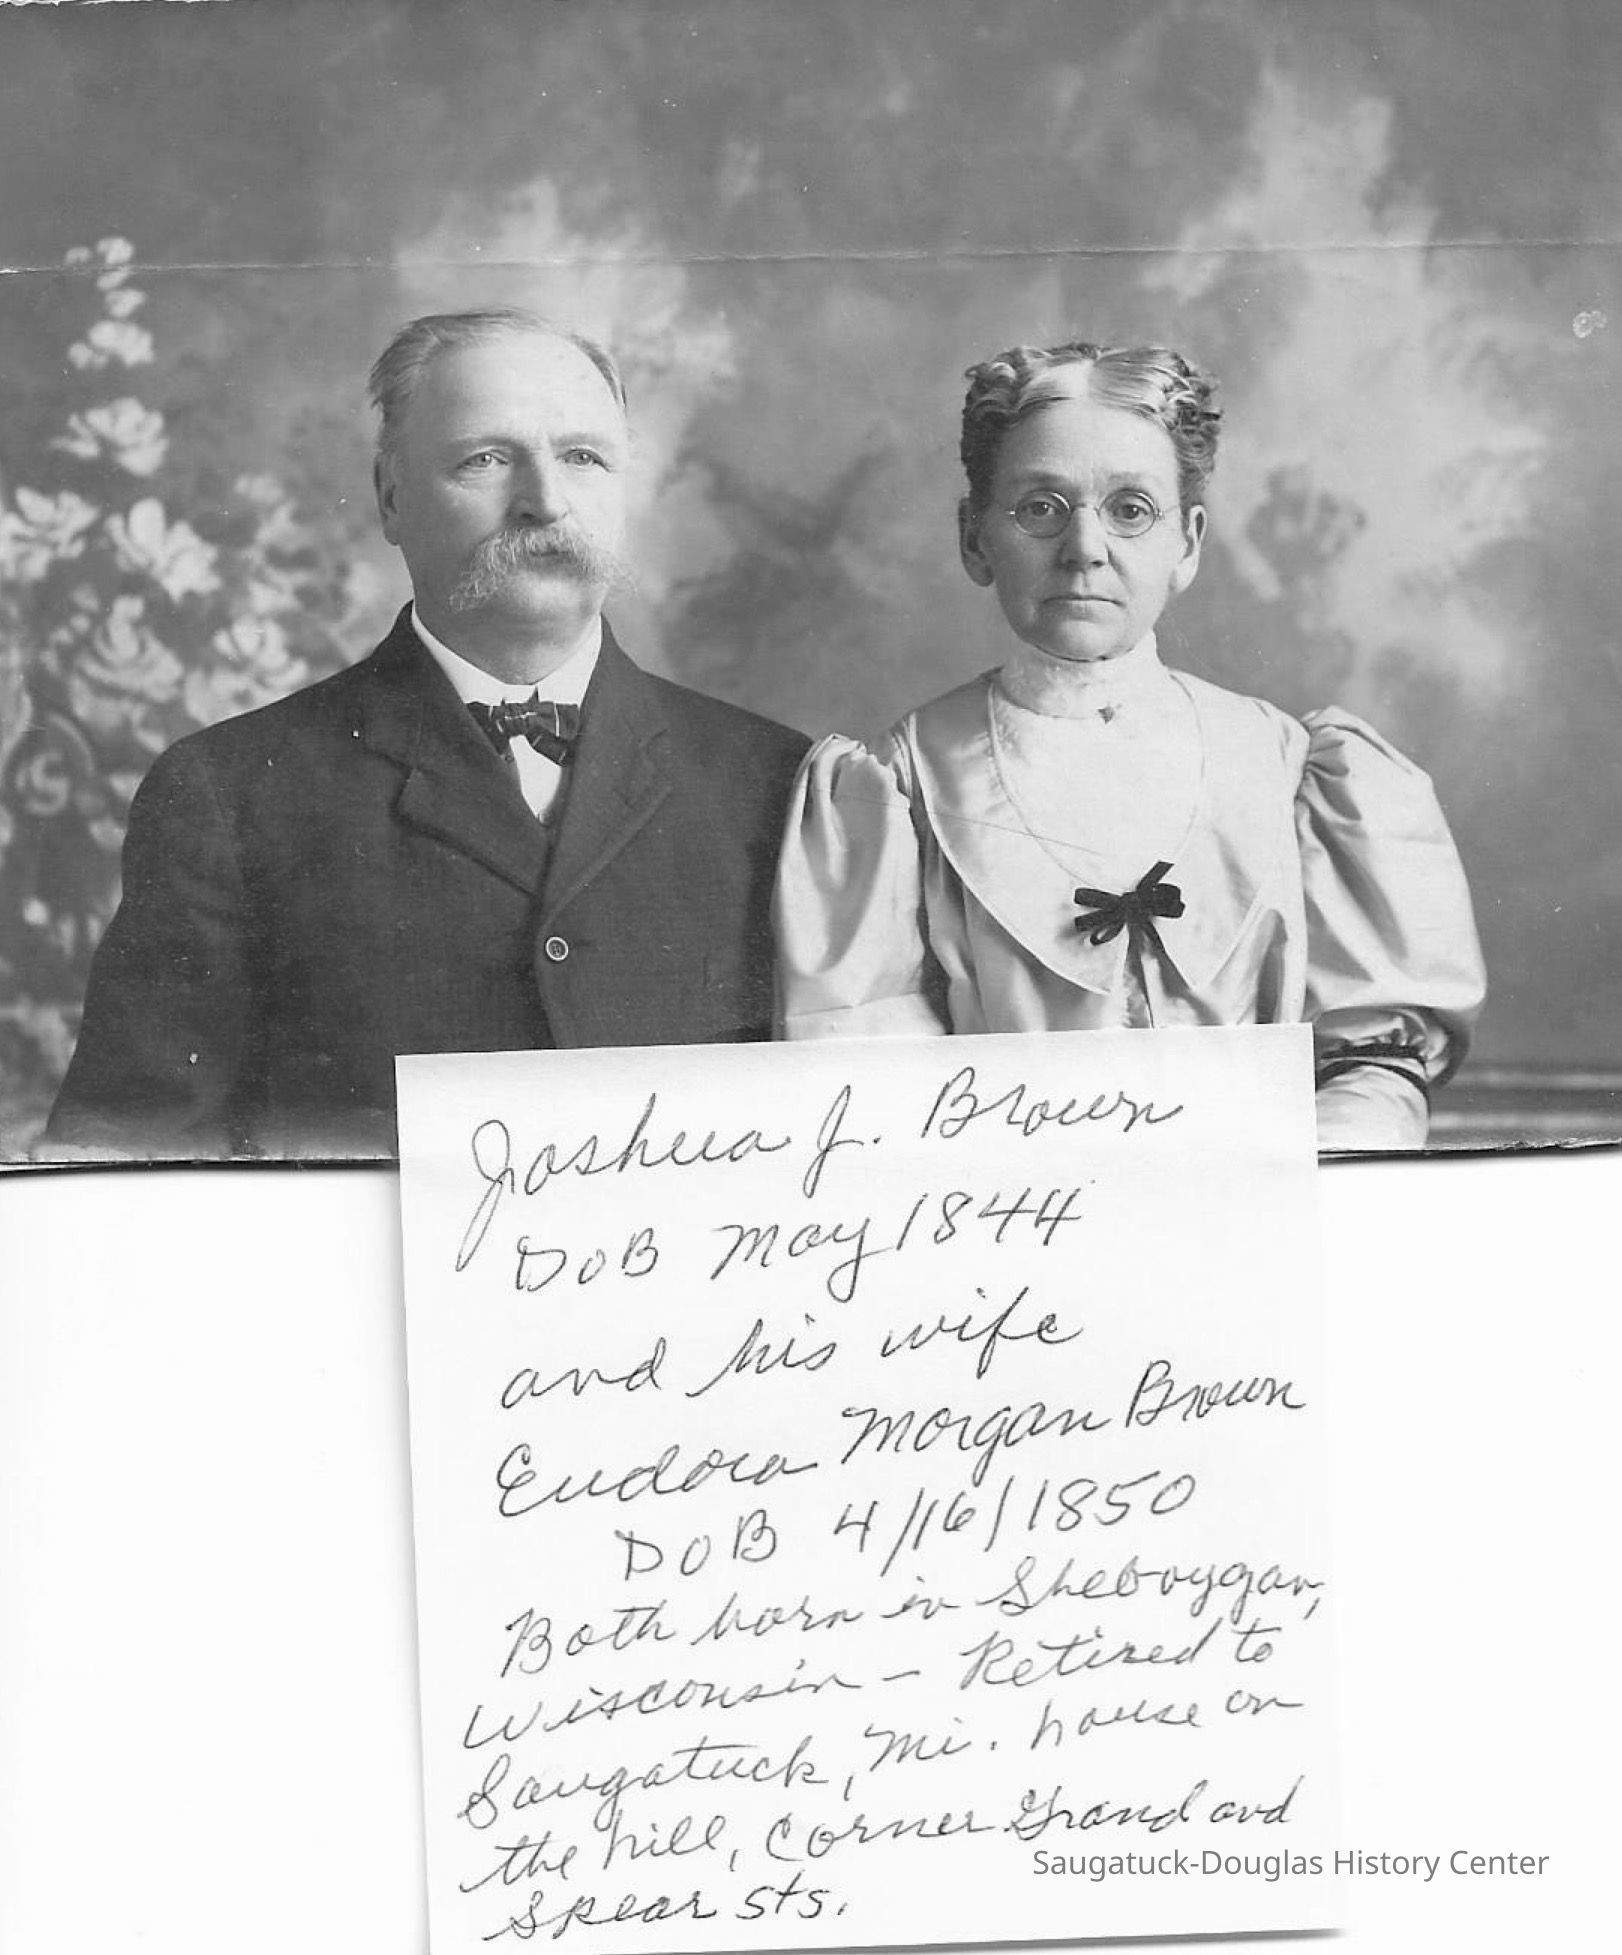 Joshua J. Brown
DoB May 1844
and his wife
Eudora Morgan Brown
DoB 4/16/1850
Both born in Sheboygan,
Wisconsin – Retired to
Saugatuck, Mi. house on
the hill, Corner Grand and
Spear sts.
Saugatuck-Douglas History Center